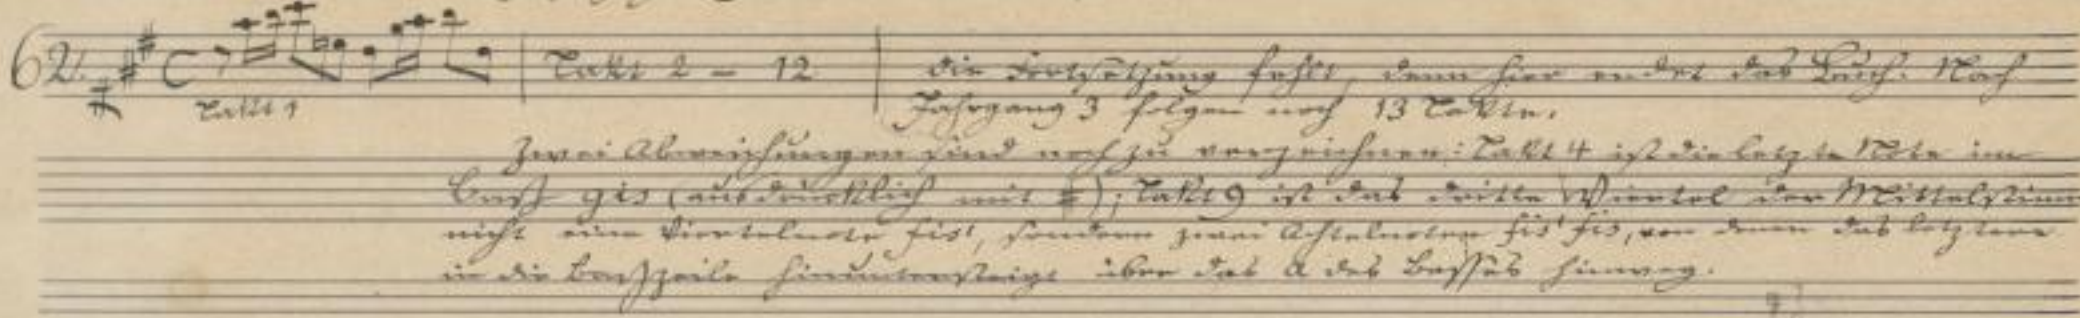 62. Takt 2 – 12 die Fortsetzung fehlt, denn hier endet das Buch. Nach
Takt 1 Jahrgang 3 folgen noch 13 Takte.
Zwei Abweichungen sind noch zu verzeichnen: Takt 4 ist die letzte Note im
Bass gis (ausdrücklich mit #); Takt 9 ist das dritte Viertel der Mittelstimme
nicht eine Viertelnote fis', sondern zwei Achtelnoten fis' fis, von denen das letztere
in die Basszeile hinuntersteigt über das A des Basses hinweg.